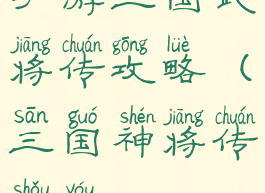 手游三国武
jiāng chuán gōng lüè
将传攻略（
sān guó shén jiāng chuán
三国神将传
shǒu yóu